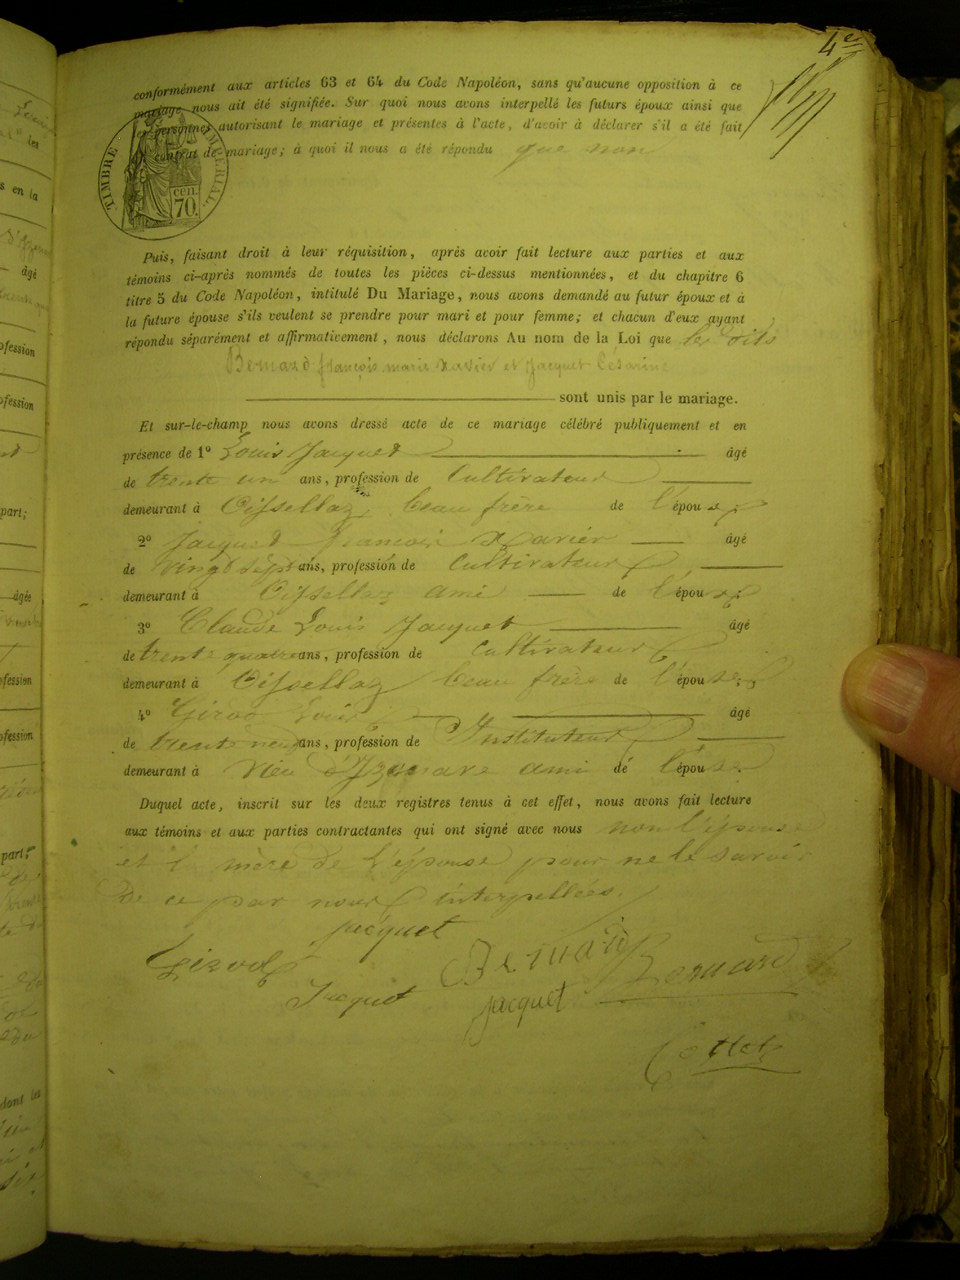 4e
conformément aux articles 63 et 64 du Code Napoléon, sans qu'aucune opposition à ce
mariage nous ait été signifiée. Sur quoi nous avons interpellé les futurs époux ainsi que
les personnes autorisant le mariage et présentes à l'acte, d'avoir à déclarer s'il a été fait
un contrat de mariage; à quoi il nous a été répondu que non
TIMBRE IMPÉRIAL.
cen.
70.
Puis, faisant droit à leur réquisition, après avoir fait lecture aux parties et aux
témoins ci-après nommés de toutes les pièces ci-dessus mentionnées, et du chapitre 6
titre 5 du Code Napoléon, intitulé Du Mariage, nous avons demandé au futur époux et à
la future épouse s'ils veulent se prendre pour mari et pour femme; et chacun d'eux ayant
répondu séparément et affirmativement, nous déclarons Au nom de la Loi que les dits
Bernard françois marie xavier et Jacquet Césarine
sont unis par le mariage.
Et sur-le-champ nous avons dressé acte de ce mariage célébré publiquement et en
présence de 1° Louis Jacquet âgé
de trente un ans, profession de Cultivateur
demeurant à Cissellaz, beau frère de l'épouse;
2° Jacquet francois Xavier âgé
de vingt sept ans, profession de Cultivateur
demeurant à Cissellaz ami de l'épouse
3° Claude Louis Jacquet âgé
de trente quatre ans, profession de Cultivateur
demeurant à Cissellaz beau frère de l'épouse;
4° Girod Louis âgé
de trente neuf ans, profession de Instituteur
demeurant à Vieu d'Izenave ami de l'épouse.
Duquel acte, inscrit sur les deux registres tenus à cet effet, nous avons fait lecture
aux témoins et aux parties contractantes qui ont signé avec nous non l'épouse
et la mère de l'épouse pour ne le savoir
de ce par nous interpellées.
jacquet
Girod Bernard Bernard
Jacquet jacquet